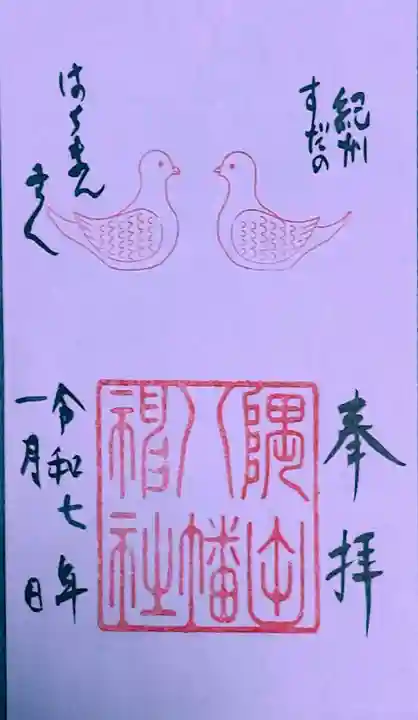 紀州
すだの
はちまん
さん
奉拝
隅田
八幡
神社
令和七年
一月 日